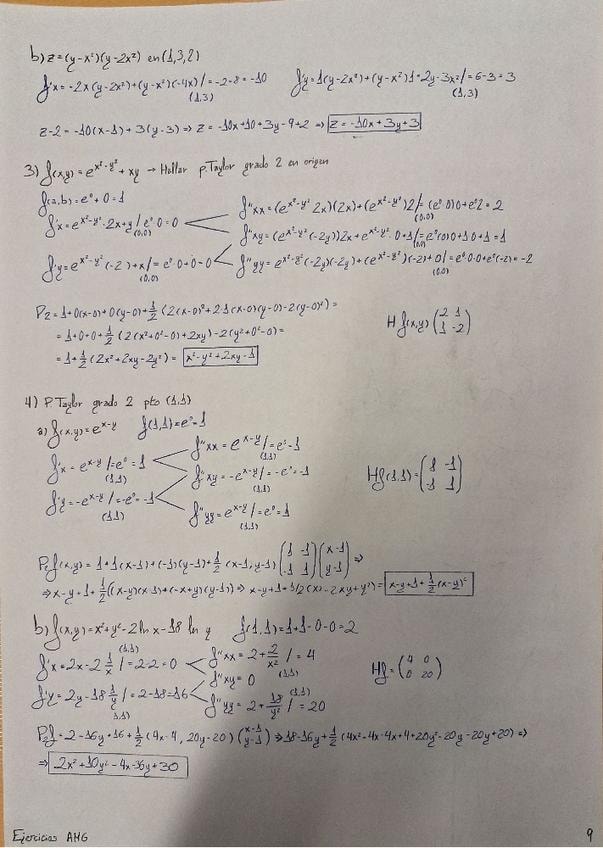 b) z=(y-x²)(y-2x²) en (1,3,2)
f'x=-2x(y-2x²)+(y-x²)(-4x)/(1,3)=-2-8=-10 f'y=1(y-2x²)+(y-x²)1=2y-3x²/(1,3)=6-3=3
z-2=-10(x-1)+3(y-3) ⇒ z=-10x+10+3y-9+2 ⇒ z=-10x+3y+3
3) f(x,y)=e^(x²-y²)+xy → Hallar p.Taylor grado 2 en origen
f(a,b)=e⁰+0=1
f''xx=(e^(x²-y²)2x)(2x)+(e^(x²-y²))2/(0,0)=(e⁰·0)0+e⁰2=2
f'x=e^(x²-y²)·2x+y/(0,0)=e⁰·0=0
f''xy=(e^(x²-y²)(-2y))2x+e^(x²-y²)·0+1/(0,0)=e⁰(0)0+1·0+1=1
f'y=e^(x²-y²)(-2)+x/(0,0)=e⁰·0+0=0 f''yy=e^(x²-y²)(-2y)(-2y)+(e^(x²-y²))(-2)+0/(0,0)=e⁰·0·0+e⁰(-2)=-2
P2=1+0(x-0)+0(y-0)+1/2(2(x-0)²+2·1(x-0)(y-0)-2(y-0)²)=
H f(x,y) (2 1
1 -2)
=1+0+0+1/2(2(x²+0²-0)+2xy)-2(y²+0²-0)=
=1+1/2(2x²+2xy-2y²)= x²-y²+2xy-1
4) P.Taylor grado 2 pto (1,1)
a) f(x,y)=e^(x-y) f(1,1)=e⁰=1
f''xx=e^(x-y)/(1,1)=e⁰=1
f'x=e^(x-y)/(1,1)=e⁰=1
f''xy=-e^(x-y)/(1,1)=-e⁰=-1
Hf(1,1)=(1 -1
-1 1)
f'y=-e^(x-y)/(1,1)=-e⁰=-1
f''yy=e^(x-y)/(1,1)=e⁰=1
P2f(x,y)=1+1(x-1)+(-1)(y-1)+1/2(x-1,y-1)(1 -1
-1 1)(x-1
y-1) ⇒
⇒x-y+1+1/2((x-y)(x-1)+(-x+y)(y-1)) ⇒ x-y+1+1/2(x²-2xy+y²)= x-y+1+1/2(x-y)²
b) f(x,y)=x²+y²-2ln x-18 ln y f(1,1)=1+1-0-0=2
f'x=2x-2 1/x/(1,1)=2-2=0 f''xx=2+2/x²/(1,1)=4
f''xy=0
Hf=(4 0
0 20)
f'y=2y-18 1/y/(1,1)=2-18=-16 f''yy=2+18/y²/(1,1)=20
P2f=2-16y+16+1/2(4x-4, 20y-20)(x-1
y-1) ⇒18-16y+1/2(4x²-4x-4x+4+20y²-20y-20y+20) ⇒
⇒ 2x²+10y²-4x-36y+30
Ejercicios AMG 9